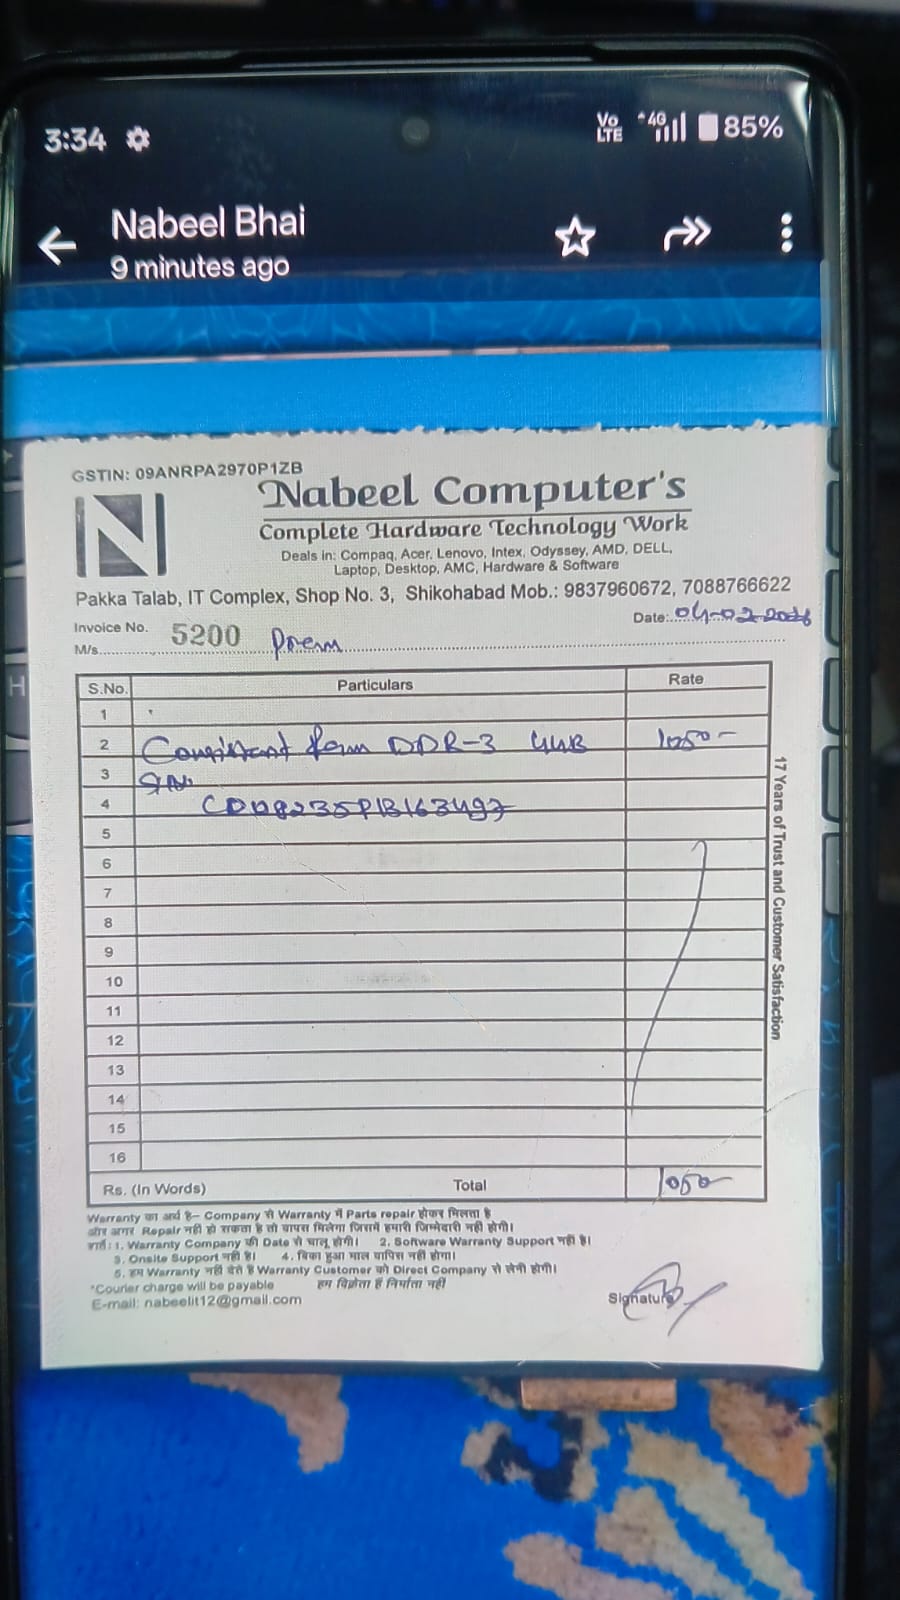 3:34
Vo LTE 4G 85%
Nabeel Bhai
9 minutes ago
GSTIN: 09ANRPA2970P1ZB
N
Nabeel Computer's
Complete Hardware Technology Work
Deals in: Compaq, Acer, Lenovo, Intex, Odyssey, AMD, DELL,
Laptop, Desktop, AMC, Hardware & Software
Pakka Talab, IT Complex, Shop No. 3, Shikohabad Mob.: 9837960672, 7088766622
Invoice No. 5200 Date:..04-02-2026
M/s. Prem
S.No. Particulars Rate
1
2 Consistant Ram DDR-3 4GB 1050-
3 S.No.
4
5
6
7
8
9
10
11
12
13
14
15
16
Rs. (In Words) Total 1050-
17 Years of Trust and Customer Satisfaction
Warranty का अर्थ है– Company से Warranty में Parts repair होकर मिलता है
और अगर Repair नहीं हो सकता है तो वापस मिलेगा जिसमें हमारी जिम्मेदारी नहीं होगी।
शर्तें: 1. Warranty Company की Date से चालू होगी। 2. Software Warranty Support नहीं है।
3. Onsite Support नहीं है। 4. बिका हुआ माल वापिस नहीं होगा।
5. हम Warranty नहीं देते है Warranty Customer को Direct Company से लेनी होगी।
*Courier charge will be payable हम विक्रेता हैं निर्माता नहीं
E-mail: nabeelit12@gmail.com
Signature
H